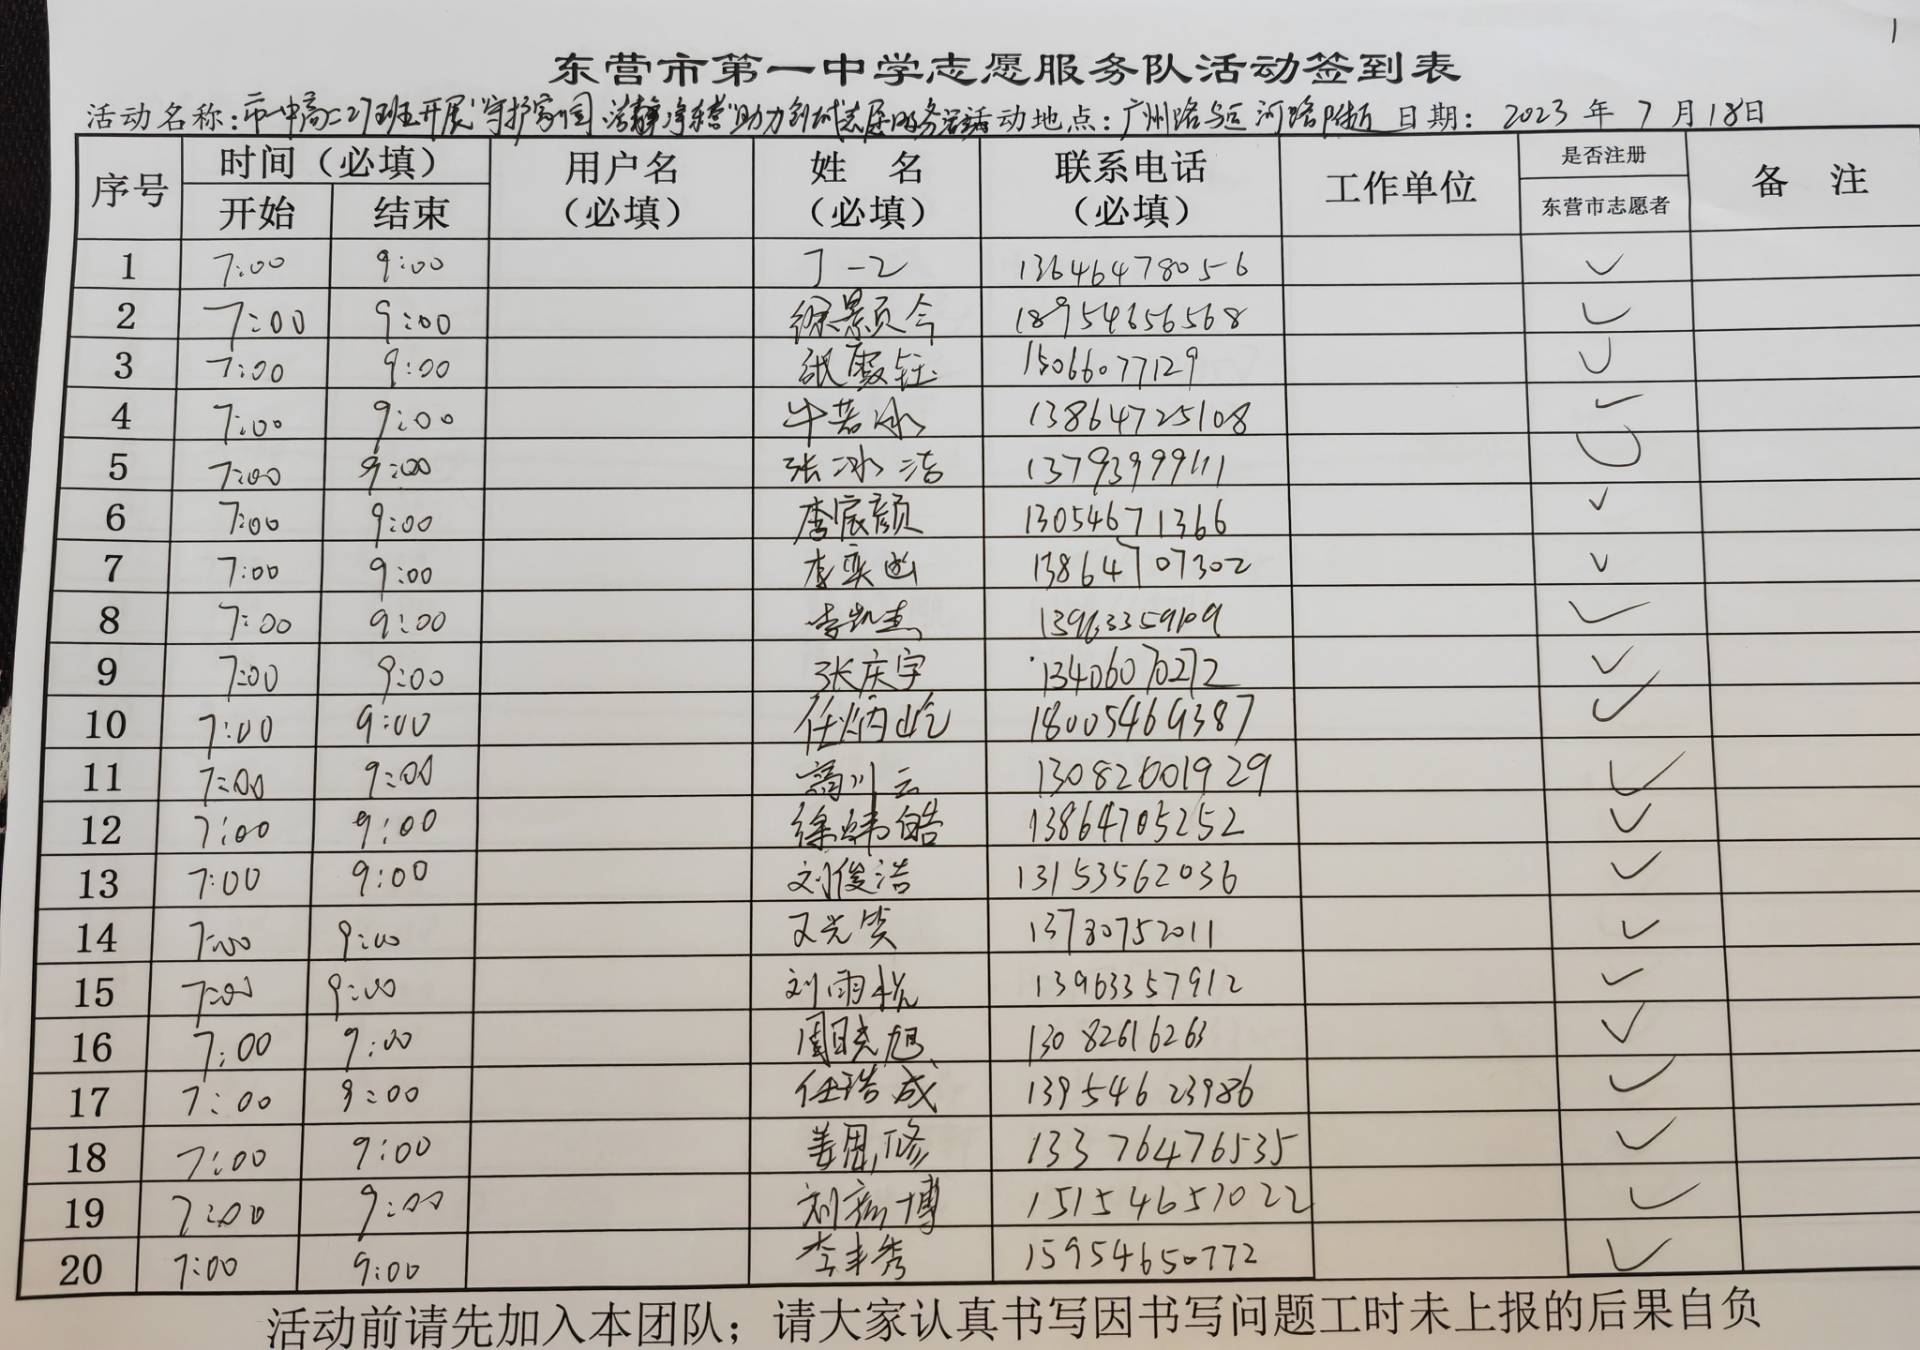 1
东营市第一中学志愿服务队活动签到表
活动名称:市一中高二27班开展"守护家园 助力创城志愿服务活动 活动地点:广州路与运河路附近 日期: 2023 年 7 月 18日
序号 时间（必填） 用户名（必填） 姓 名（必填） 联系电话（必填） 工作单位 是否注册 东营市志愿者 备 注
开始 结束
1 7:00 9:00 丁一乙 13646478056 ✓
2 7:00 9:00 徐景页今 18954656568 ✓
3 7:00 9:00 钰 15066077129 ✓
4 7:00 9:00 牛若冰 13864725108 ✓
5 7:00 9:00 张冰洁 13793999111 ✓
6 7:00 9:00 李宸颜 13054671366 ✓
7 7:00 9:00 李奕 13864707302 ✓
8 7:00 9:00 李凯杰 13963359109 ✓
9 7:00 9:00 张庆宇 13406070272 ✓
10 7:00 9:00 任炳屹 18005469387 ✓
11 7:00 9:00 高川云 13082601929 ✓
12 7:00 9:00 徐炜皓 13864705252 ✓
13 7:00 9:00 刘俊浩 13153562036 ✓
14 7:00 9:00 13780752011 ✓
15 7:00 9:00 刘雨悦 13963357912 ✓
16 7:00 9:00 周晓旭 13082616263 ✓
17 7:00 9:00 任浩成 13954623986 ✓
18 7:00 9:00 姜思修 13376476535 ✓
19 7:00 9:00 刘宏博 15154651022 ✓
20 7:00 9:00 李丰秀 15954650772 ✓
活动前请先加入本团队；请大家认真书写因书写问题工时未上报的后果自负